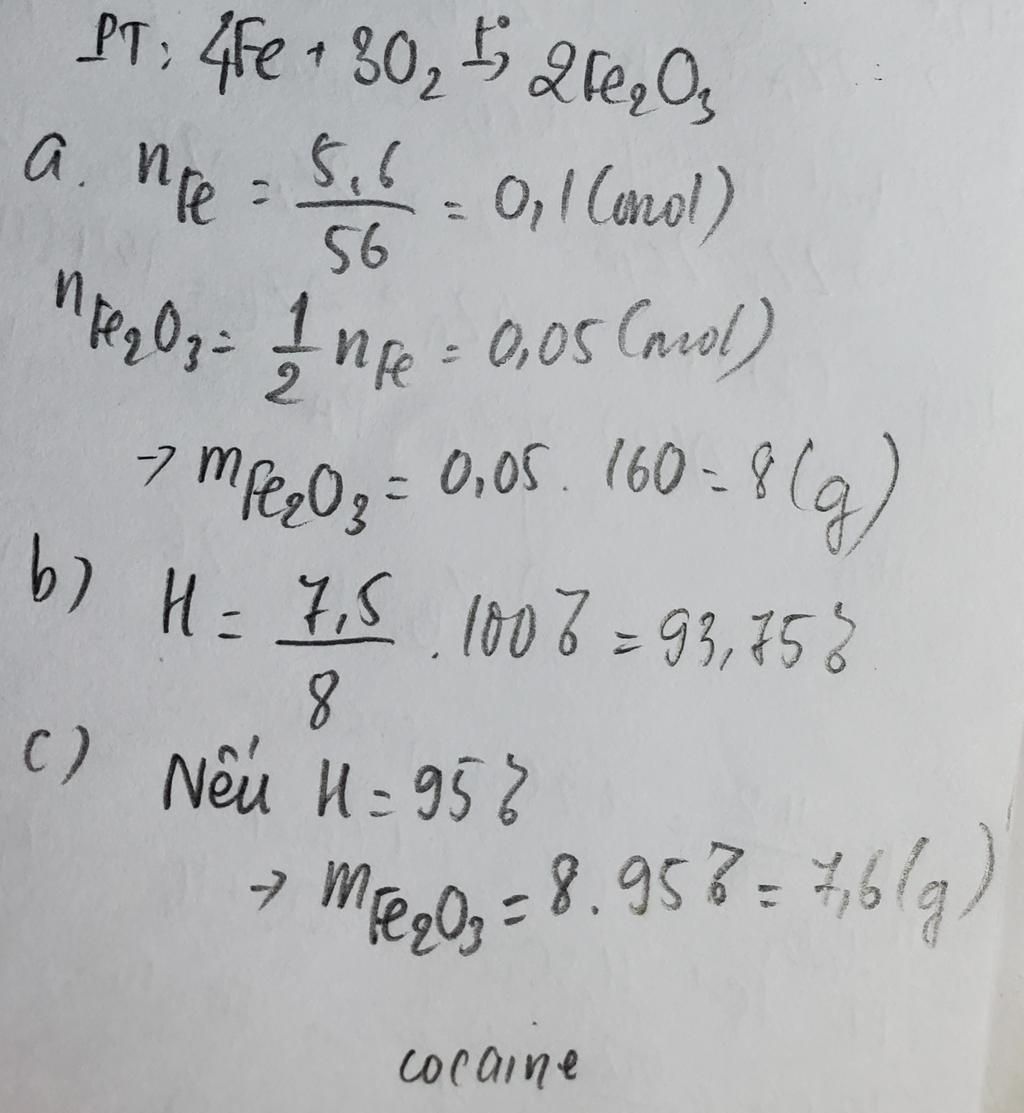 PT: 4Fe + 3O₂ t°→ 2Fe₂O₃
a. nFe = 5,6/56 = 0,1 (mol)
nFe₂O₃ = 1/2 nFe = 0,05 (mol)
→ mFe₂O₃ = 0,05 . 160 = 8 (g)
b) H = 7,5/8 . 100% = 93,75%
c) Nếu H = 95%
→ mFe₂O₃ = 8 . 95% = 7,6 (g)
cocaine